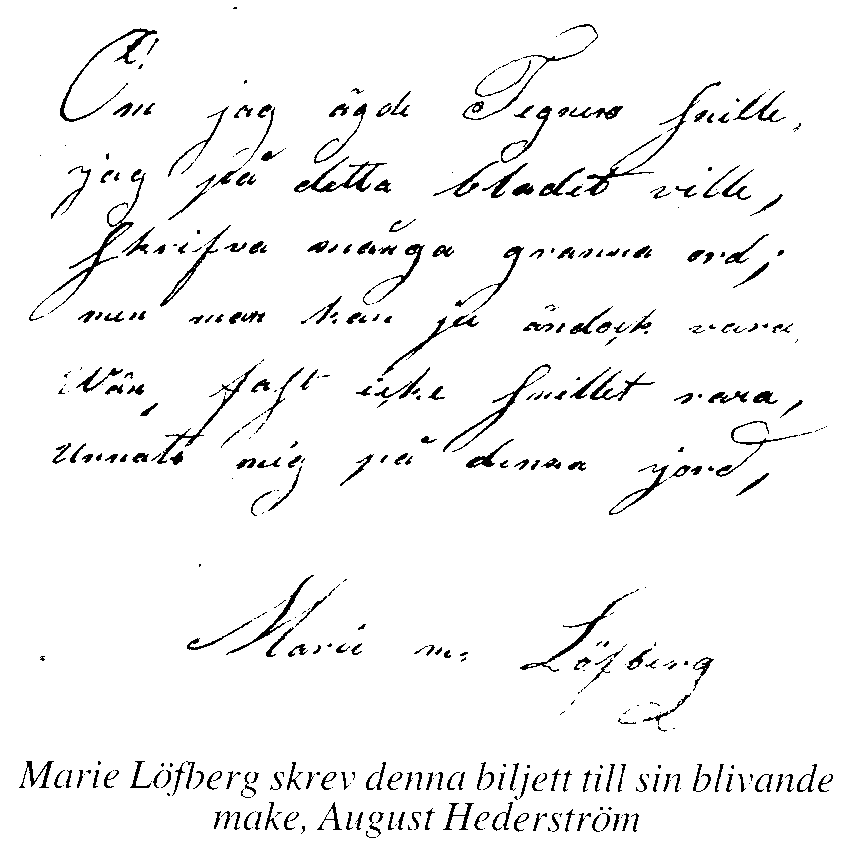 Om jag ägde Tegners snille,
jag på detta bladet ville,
skrifva många granna ord;
men man kan ju ändock vara
Vän, fast icke snillet rara,
Unnats mig på denna jord,
Marie m: Löfberg
Marie Löfberg skrev denna biljett till sin blivande
make, August Hederström